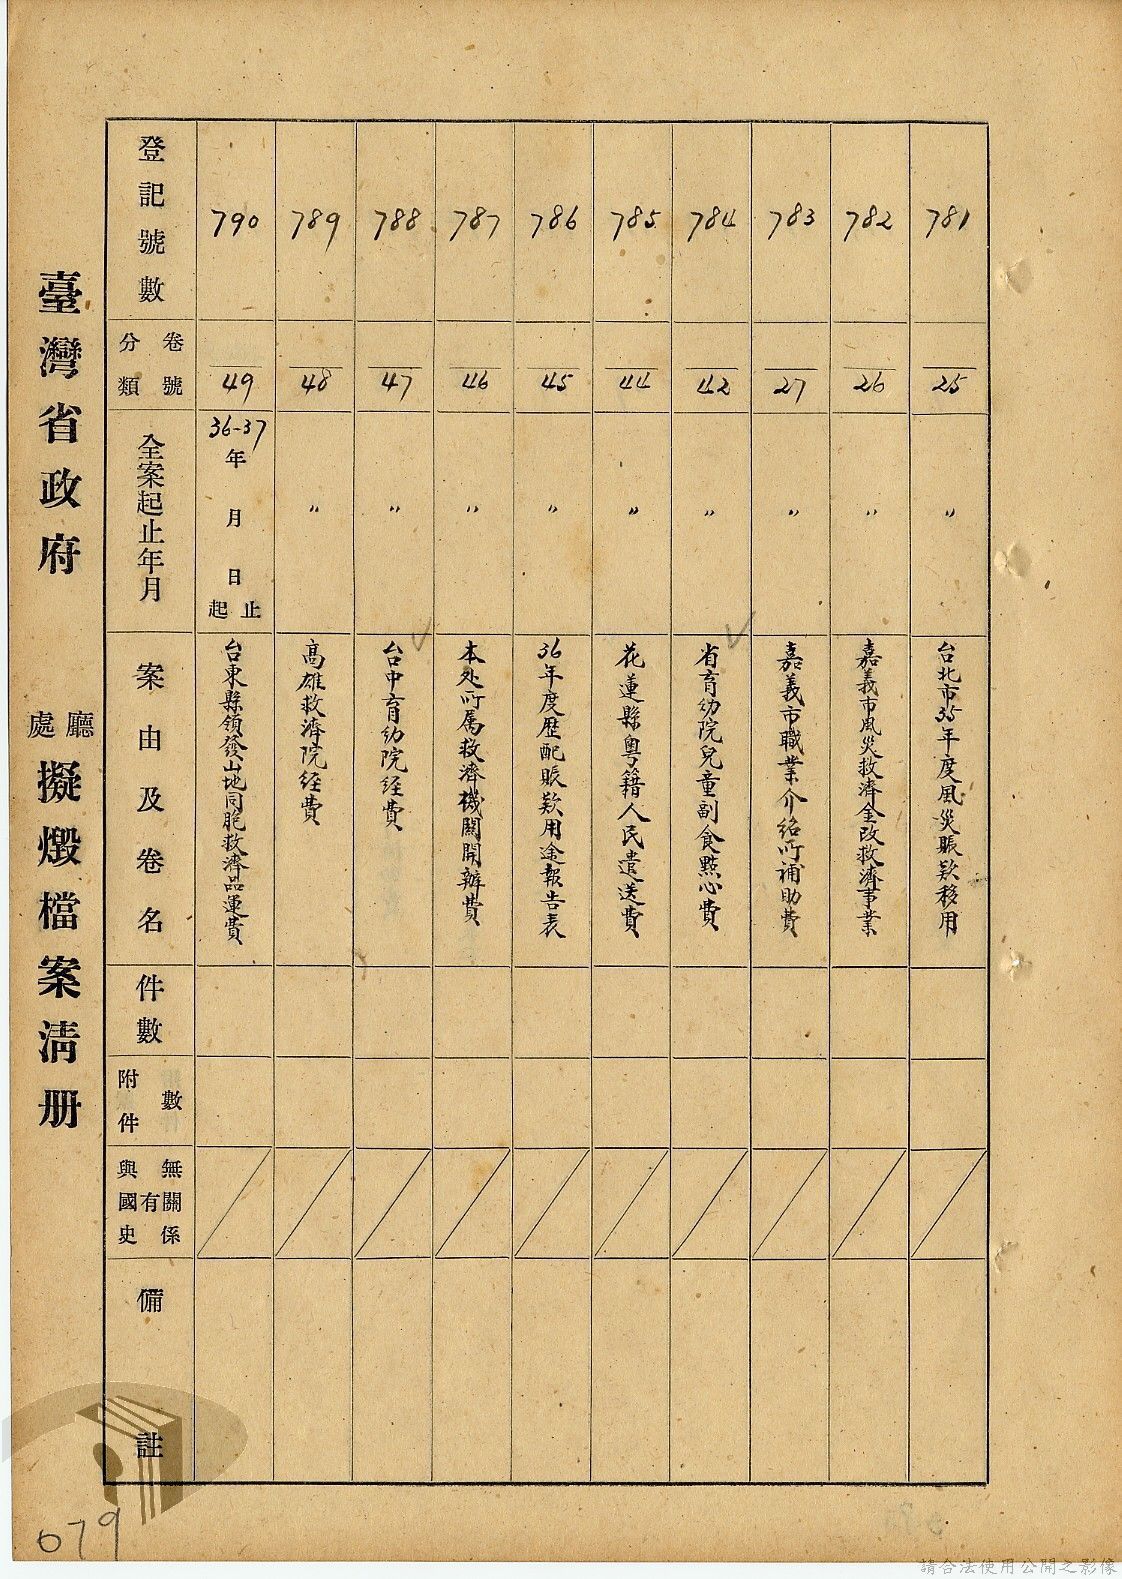 臺灣省政府
廳
處
擬燬檔案清册
登記號數
卷號
分類
全案起止年月
案由及卷名
件數
附件
數
與國史
有
無關係
備
註
790
49
36-37
年
月
日
止
起
台東縣領發山地同胞救濟品運費
789
48
〃
高雄救濟院経費
788
47
〃
台中育幼院経費
787
46
〃
本处所属救濟機關開辦費
786
45
〃
36年度歷配賑欵用途報告表
785
44
〃
花蓮縣粵籍人民遣送費
784
42
〃
省育幼院兒童副食點心費
783
27
〃
嘉義市職業介紹所補助費
782
26
〃
嘉義市風災救濟金改救濟事業
781
25
〃
台北市35年度風災賑欵移用
079
請合法使用公開之影像